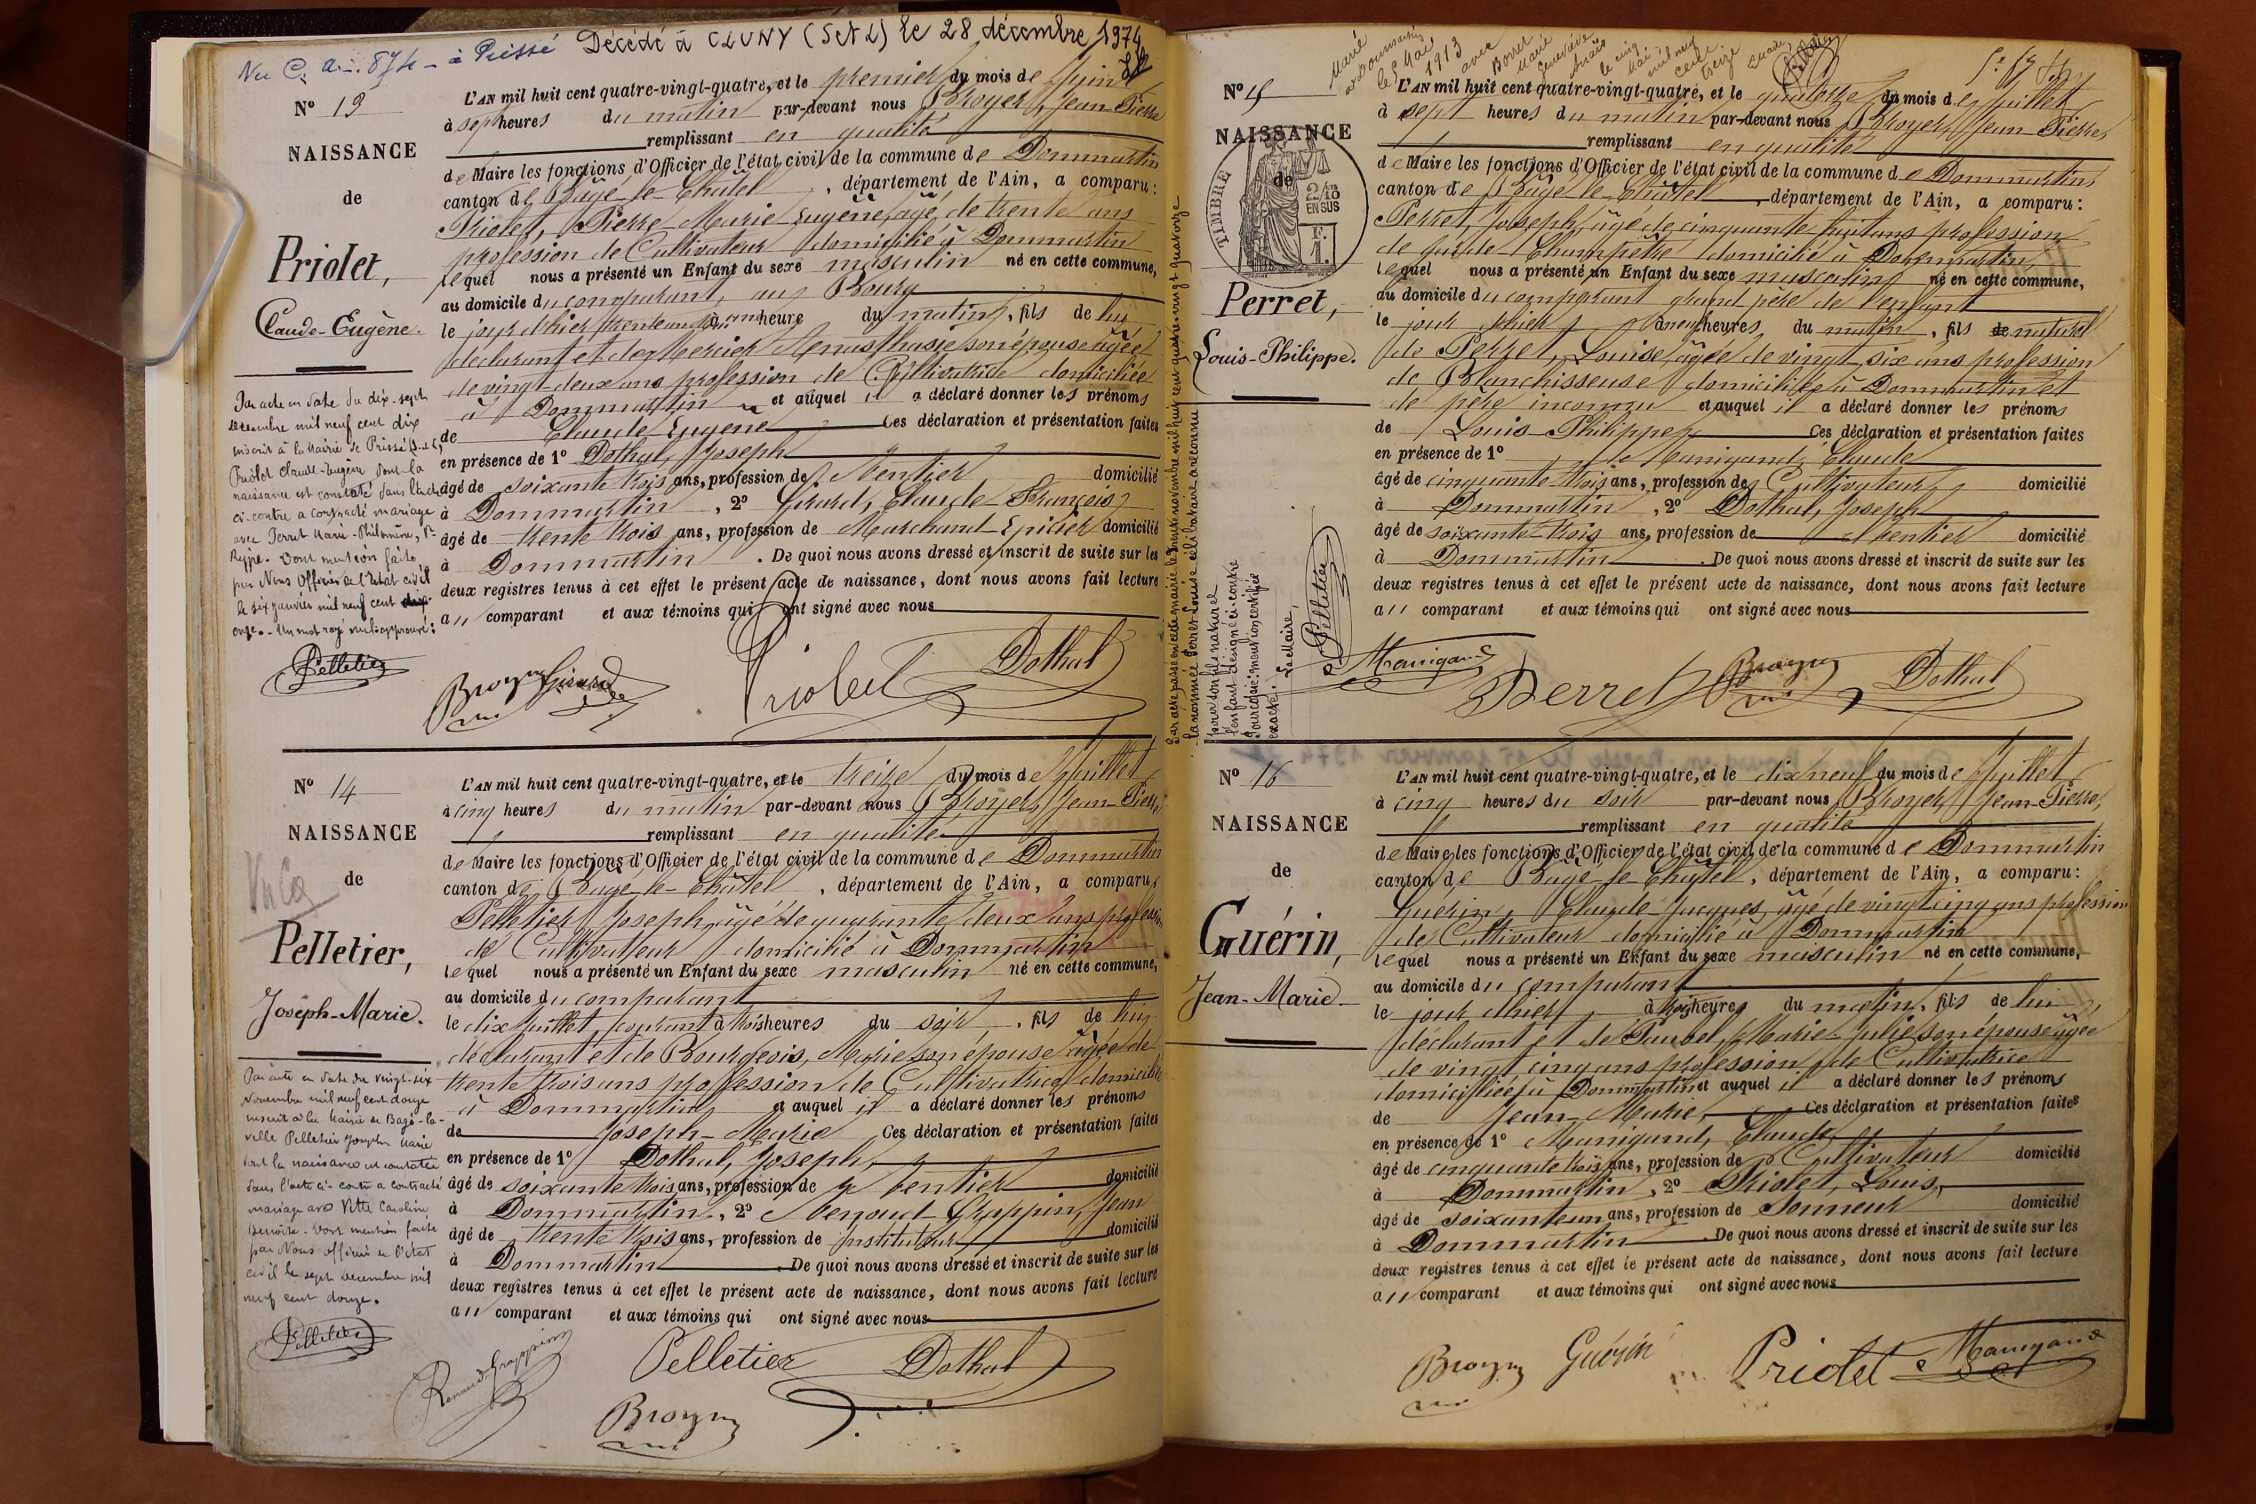 Décédé à CLUNY (S et L) le 28 décembre 1974
N° 13
L'AN mil huit cent quatre-vingt-quatre, et le premier du mois de Juin
à sept heures du matin par-devant nous Broyer, Jean-Pierre
NAISSANCE
remplissant en qualité
de Maire les fonctions d'Officier de l'état civil de la commune de Dommartin
de
canton de Bâgé-le-Châtel, département de l'Ain, a comparu:
Priolet, Pierre Marie Eugène, âgé de trente ans
profession de Cultivateur domicilié à Dommartin
Priolet,
lequel nous a présenté un Enfant du sexe masculin né en cette commune,
au domicile du comparant, au Bourg
Claude-Eugène.
le jour d'hier trente un à une heure du matin, fils de lui
déclarant et de Mercier son épouse âgée
de vingt-deux ans profession de Cultivatrice domiciliée
à Dommartin et auquel il a déclaré donner les prénoms
de Claude-Eugène Ces déclaration et présentation faites
en présence de 1° Dothal, Joseph
âgé de soixante trois ans, profession de rentier domicilié
à Dommartin, 2° Girard, Claude-François
âgé de trente trois ans, profession de Marchand-Epicier domicilié
à Dommartin. De quoi nous avons dressé et inscrit de suite sur les
deux registres tenus à cet effet le présent acte de naissance, dont nous avons fait lecture
au comparant et aux témoins qui ont signé avec nous
Par acte en date du dix-sept
décembre mil neuf cent dix
inscrit à la Mairie de Prissé (S.-et-L.)
Priolet Claude-Eugène dont la
naissance est constatée dans l'acte
ci-contre a contracté mariage
avec Perret Marie-Philomène,
Dont mention faite
par Nous Officier de l'état civil
le six janvier mil neuf cent
onze. - Un mot rayé nul approuvé:
Pelletier
Broyer
Girard
Priolet
Dothal
N° 14
L'AN mil huit cent quatre-vingt-quatre, et le treize du mois de Juillet
à cinq heures du matin par-devant nous Broyer, Jean-Pierre
NAISSANCE
remplissant en qualité
de Maire les fonctions d'Officier de l'état civil de la commune de Dommartin
de
canton de Bâgé-le-Châtel, département de l'Ain, a comparu
Pelletier, Joseph, âgé de quarante deux ans profession
de Cultivateur domicilié à Dommartin
Pelletier,
lequel nous a présenté un Enfant du sexe masculin né en cette commune,
au domicile du comparant
Joseph-Marie.
le dix Juillet courant à trois heures du soir, fils de lui
déclarant et de Bourgeois, Marie son épouse âgée de
trente trois ans profession de Cultivatrice domiciliée
à Dommartin et auquel il a déclaré donner les prénoms
de Joseph-Marie Ces déclaration et présentation faites
en présence de 1° Dothal, Joseph,
âgé de soixante trois ans, profession de rentier domicilié
à Dommartin, 2° Renoud-Grappin, Jean
âgé de trente trois ans, profession de Instituteur domicilié
à Dommartin. De quoi nous avons dressé et inscrit de suite sur les
deux registres tenus à cet effet le présent acte de naissance, dont nous avons fait lecture
au comparant et aux témoins qui ont signé avec nous
Par acte en date du vingt-six
Novembre mil neuf cent douze
inscrit à la Mairie de Bagé-la-
ville Pelletier Joseph Marie
dont la naissance est constatée
dans l'acte ci-contre a contracté
mariage avec Vitte Caroline
Dont mention faite
par Nous officier de l'état
civil le sept décembre mil
neuf cent douze.
Pelletier
Renoud-Grappin
Pelletier
Dothal
Broyer
Marié
à
le 5 Mai
1913
avec
Borret
Marie
Geneviève
le cinq
Mai
mil neuf
cent
treize
Pelletier
N° 15
L'AN mil huit cent quatre-vingt-quatre, et le quatorze du mois de Juillet
à sept heures du matin par-devant nous Broyer, Jean-Pierre
NAISSANCE
remplissant en qualité
de Maire les fonctions d'Officier de l'état civil de la commune de Dommartin
de
TIMBRE
2/10
EN SUS
canton de Bâgé-le-Châtel, département de l'Ain, a comparu:
Perret, Joseph, âgé de cinquante huit ans profession
de garde-Champêtre domicilié à Dommartin
lequel nous a présenté un Enfant du sexe masculin né en cette commune,
Perret,
au domicile du comparant grand père de l'enfant
le jour d'hier à neuf heures du matin, fils de naturel
Louis-Philippe.
de Perret, Louise âgée de vingt six ans profession
de Blanchisseuse domiciliée à Dommartin et
de père inconnu et auquel il a déclaré donner les prénoms
de Louis-Philippe Ces déclaration et présentation faites
en présence de 1° Manigand, Claude
âgé de cinquante trois ans, profession de Cultivateur domicilié
à Dommartin, 2° Dothal, Joseph
âgé de soixante-trois ans, profession de rentier domicilié
à Dommartin. De quoi nous avons dressé et inscrit de suite sur les
deux registres tenus à cet effet le présent acte de naissance, dont nous avons fait lecture
au comparant et aux témoins qui ont signé avec nous
Par acte passé en cette mairie le novembre mil huit cent quatre-vingt quatorze
la nommée Perret Louise célibataire a reconnu
pour son fils naturel
l'enfant désigné ci-contre
Pour mention certifiée
exacte. Le Maire,
Pelletier
Manigand
Perret
Broyer
Dothal
N° 16
L'AN mil huit cent quatre-vingt-quatre, et le dix neuf du mois de Juillet
à cinq heures du soir par-devant nous Broyer, Jean-Pierre,
NAISSANCE
remplissant en qualité
de Maire les fonctions d'Officier de l'état civil de la commune de Dommartin
de
canton de Bâgé-le-Châtel, département de l'Ain, a comparu:
Guérin, Claude-Jacques, âgé de vingt cinq ans profession
de Cultivateur domicilié à Dommartin
Guérin,
lequel nous a présenté un Enfant du sexe masculin né en cette commune,
au domicile du comparant
Jean-Marie.
le jour d'hier à trois heures du matin, fils de lui
déclarant et de Marie-Julie son épouse âgée
de vingt cinq ans profession de Cultivatrice
domiciliée à Dommartin et auquel il a déclaré donner les prénoms
de Jean-Marie, Ces déclaration et présentation faites
en présence de 1° Manigand, Claude
âgé de cinquante trois ans, profession de Cultivateur domicilié
à Dommartin, 2° Priolet, Louis,
âgé de soixante un ans, profession de Sonneur domicilié
à Dommartin. De quoi nous avons dressé et inscrit de suite sur les
deux registres tenus à cet effet le présent acte de naissance, dont nous avons fait lecture
au comparant et aux témoins qui ont signé avec nous
Broyer
Guérin
Priolet
Manigand